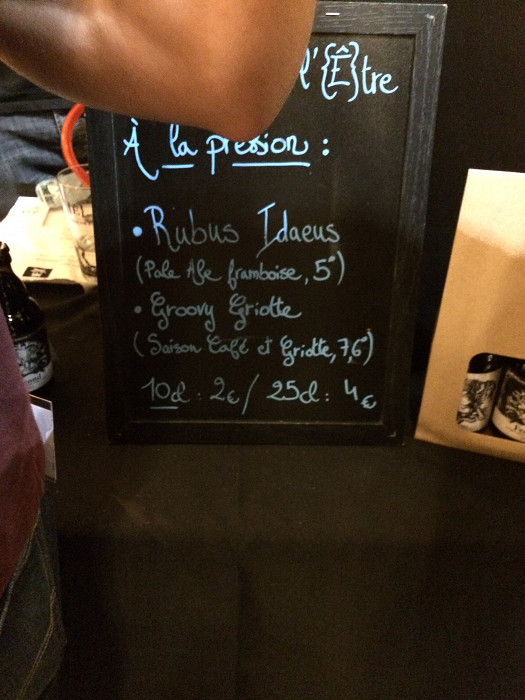 l'{Ê}tre
À la pression :
• Rubus Idaeus
(Pale Ale framboise, 5°)
• Groovy Griotte
(Saison Café et Griotte, 7,6°)
10cl : 2€ / 25cl : 4€